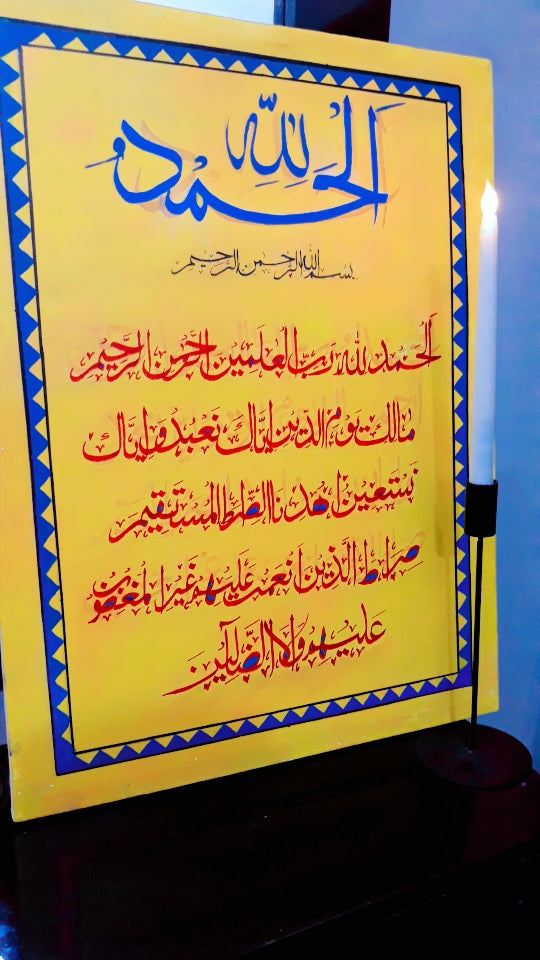 الحمد لله
بسم الله الرحمن الرحيم
الحمد لله رب العلمين الرحمن الرحيم
مالك يوم الدين اياك نعبد و اياك
نستعين اهدنا الصراط المستقيم
صراط الذين انعمت عليهم غير المغضوب
عليهم ولا الضالين